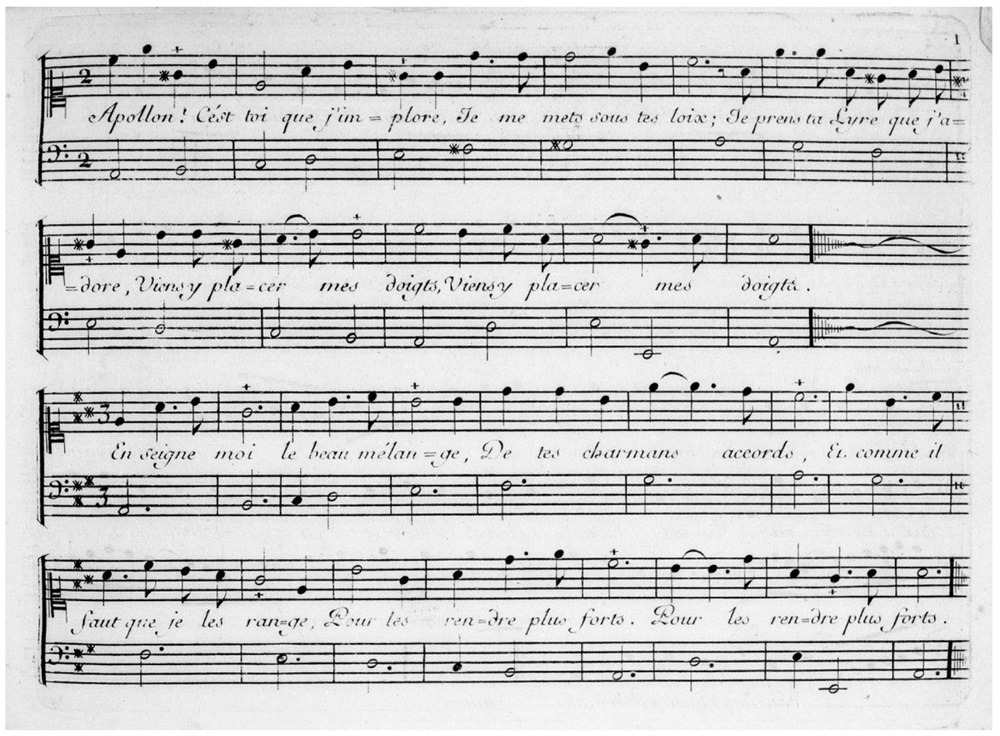 1
2
Apollon! C'ést toi que j'im=plore, Je me mets sous tes loix; Je prens ta Lyre que j'a=
2
=dore, Viens y pla=cer mes doigts, Viens y pla=cer mes doigts.
3
En seigne moi le beau mélan=ge, De tes charmans accords, Et comme il
3
faut que je les ran=ge, Pour les ren=dre plus forts. Pour les ren=dre plus forts.